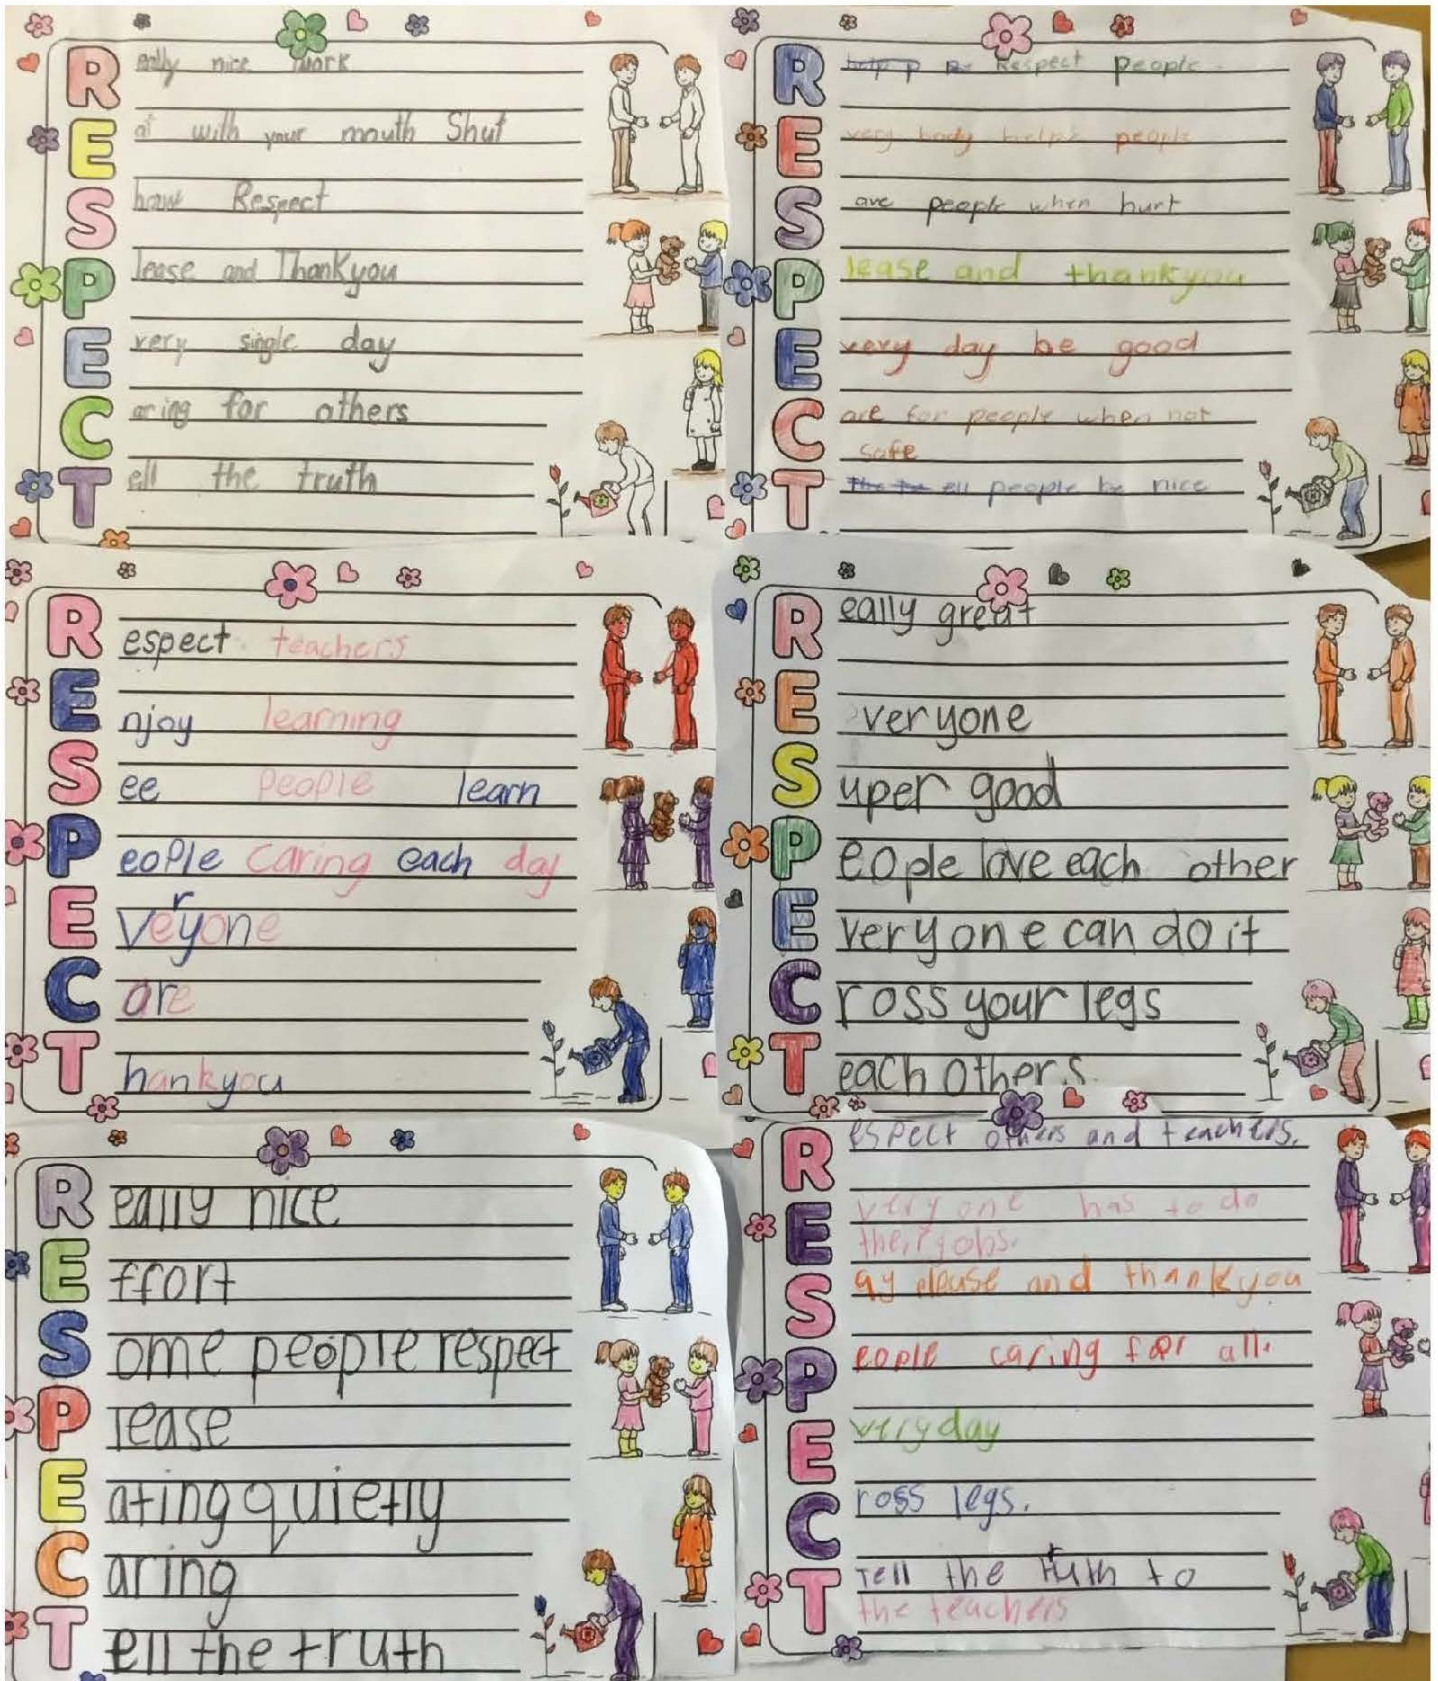 Really nice work
Eat with your mouth Shut
Show Respect
Please and Thankyou
Every single day
Caring for others
Tell the truth
R help p Respect people
Every body helps people
Save people when hurt
Please and thankyou
Every day be good
Care for people when not
safe
Tell people be nice
Respect teachers
Enjoy learning
See people learn
PeoPle caring each day
Everyone
Care
Thankyou
Really great
Everyone
Super good
People love each other
Everyone can do it
Cross your legs
Teach others.
Really nice
Effort
Some people respect
Please
Eating quietly
Caring
Tell the truth
Respect others and teachers.
Everyone has to do
their jobs.
Say please and thankyou
People caring for all.
Everyday
Cross legs.
T Tell the truth to
the teachers